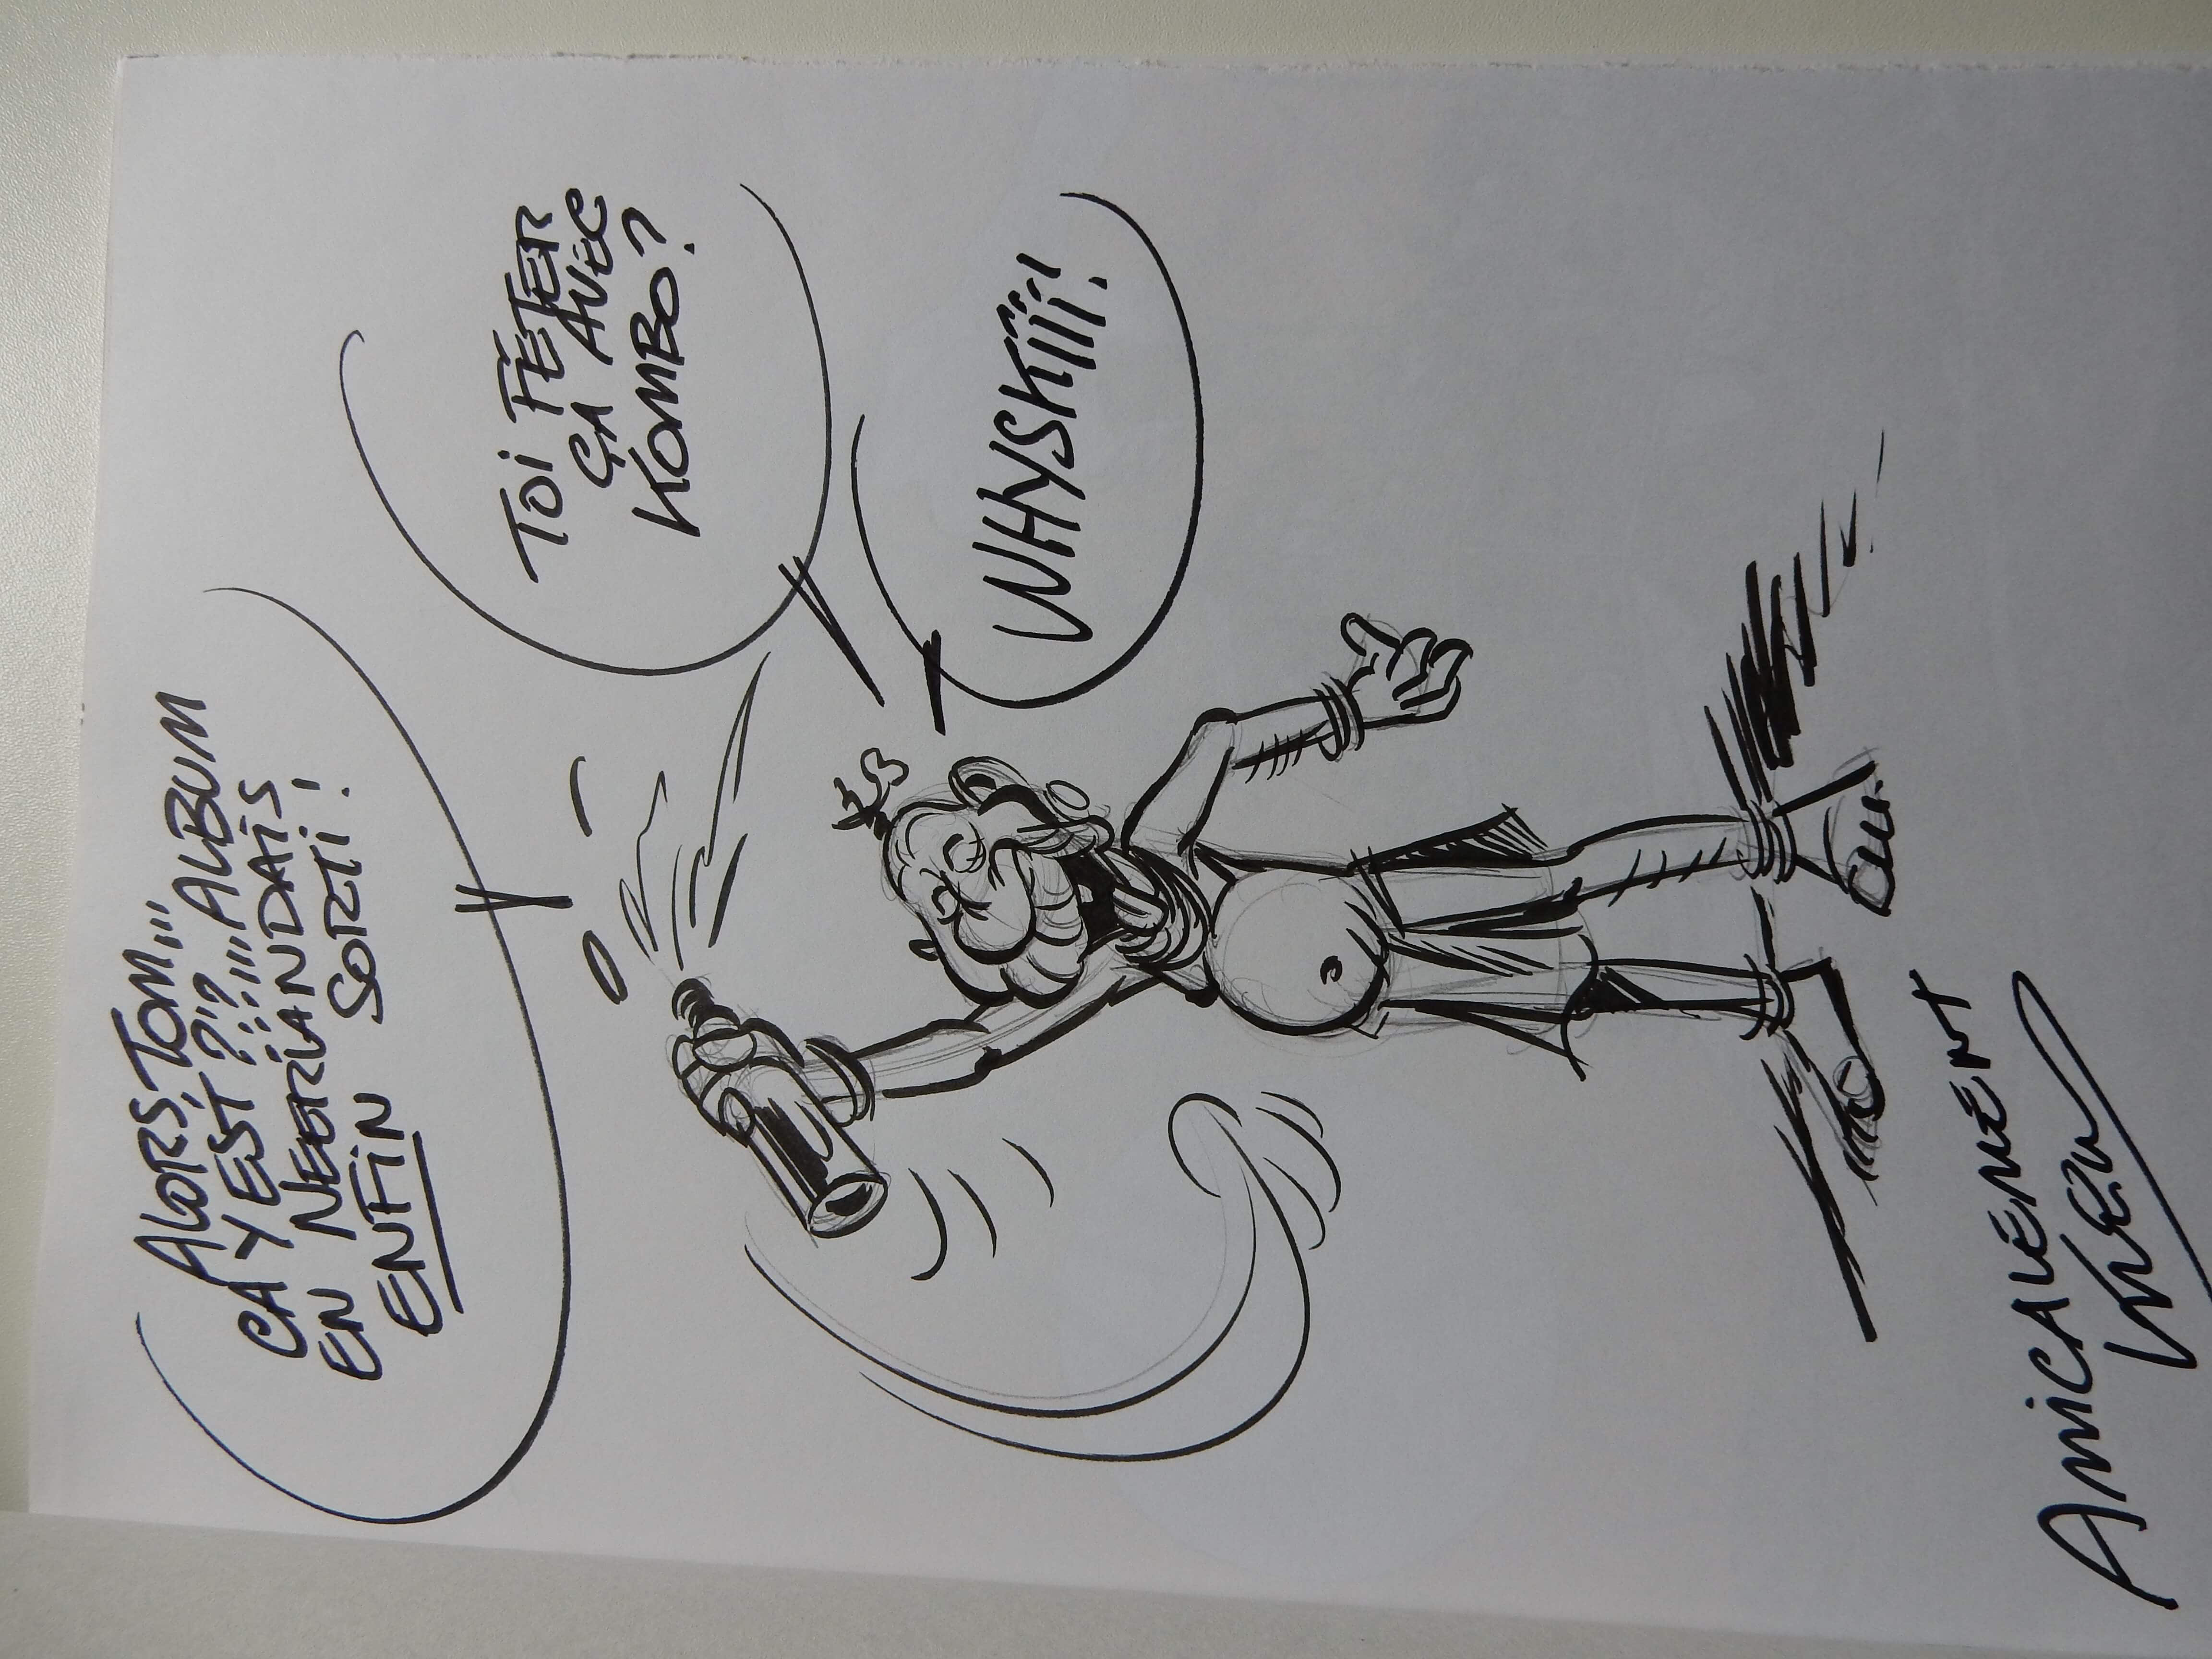 ALORS, TOM...
ÇA Y EST ?!?... ALBUM
EN NEERLANDAIS
ENFIN SORTI !
TOI FÊTER
ÇA AVEC
KOMBO?
WHYSKIII!
AMICALEMENT